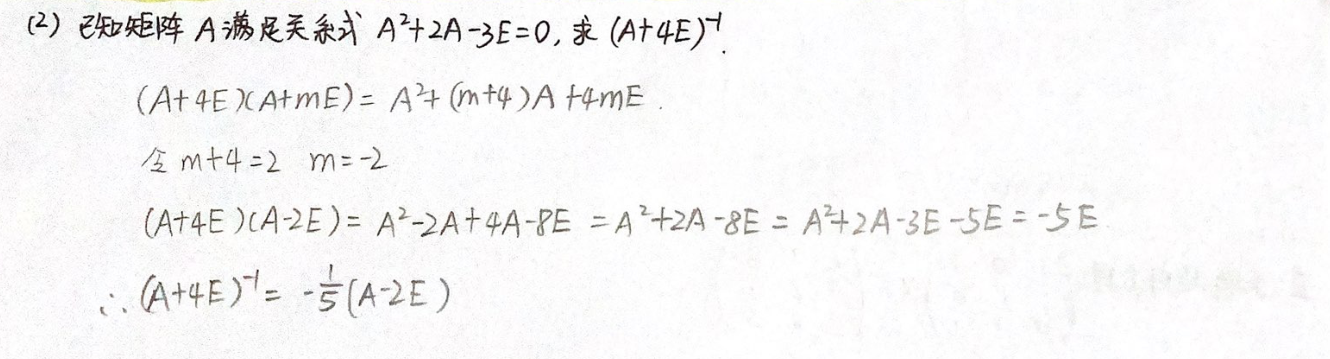 (2) 已知矩阵 A满足关系式 A²+2A-3E=0, 求 (A+4E)⁻¹.
(A+4E)(A+mE) = A²+(m+4)A+4mE.
令 m+4=2 m=-2
(A+4E)(A-2E) = A²-2A+4A-8E = A²+2A-8E = A²+2A-3E-5E = -5E
∴ (A+4E)⁻¹ = -1/5(A-2E)